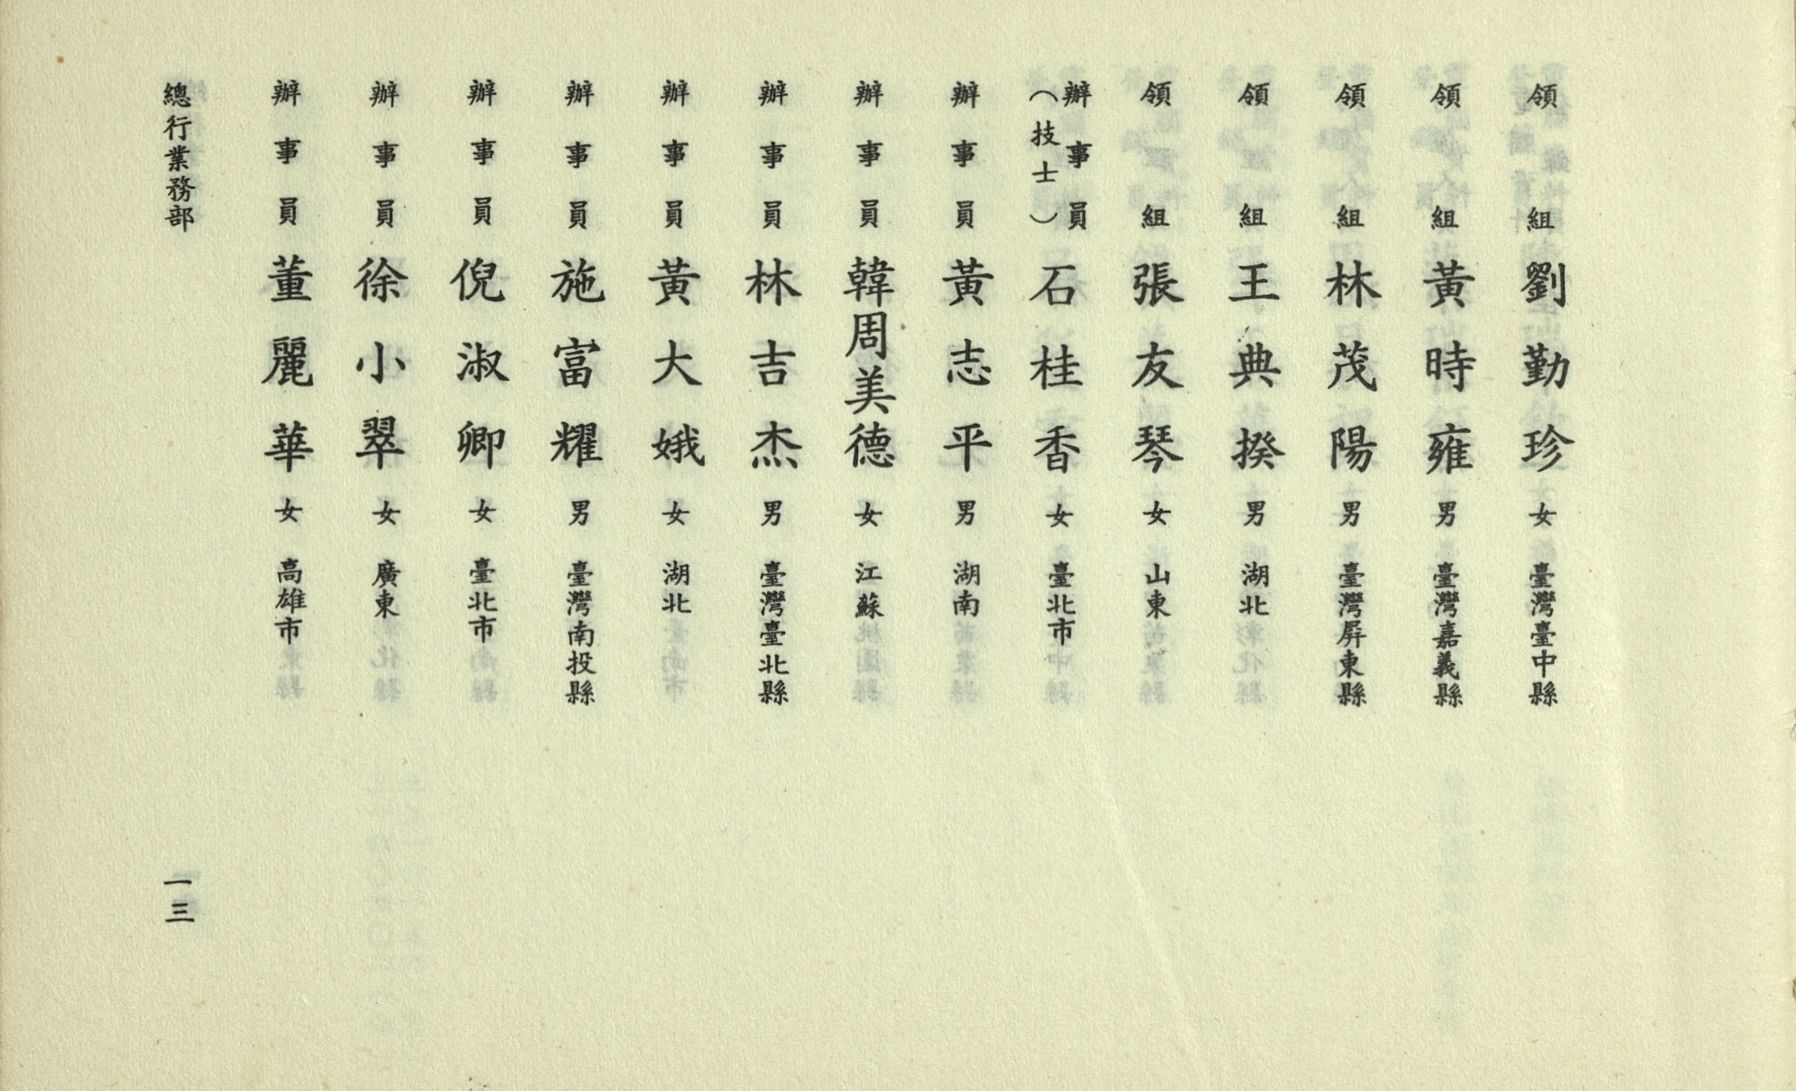 領組 劉勤珍 女 臺灣臺中縣
領組 黃時雍 男 臺灣嘉義縣
領組 林茂陽 男 臺灣屏東縣
領組 王典揆 男 湖北
領組 張友琴 女 山東
辦事員（技士） 石桂香 女 臺北市
辦事員 黃志平 男 湖南
辦事員 韓周美德 女 江蘇
辦事員 林吉杰 男 臺灣臺北縣
辦事員 黃大娥 女 湖北
辦事員 施富耀 男 臺灣南投縣
辦事員 倪淑卿 女 臺北市
辦事員 徐小翠 女 廣東
辦事員 董麗華 女 高雄市
總行業務部 一三